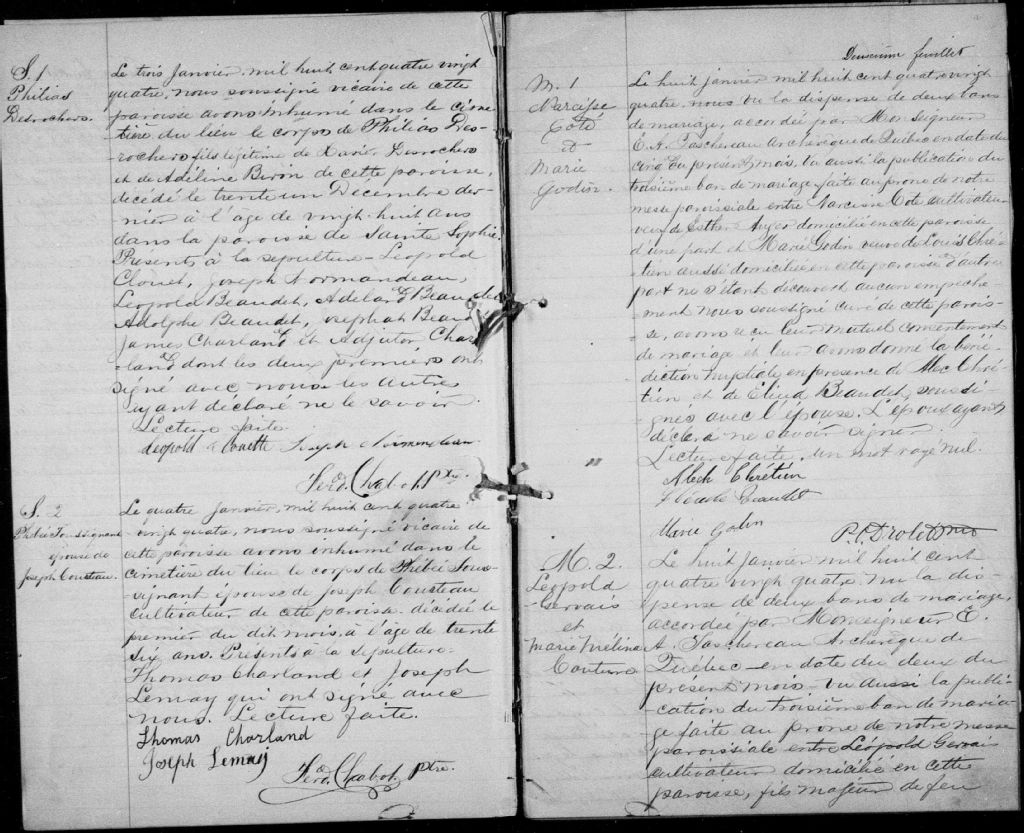 S. 1
Philias
Desrochers.
Le trois Janvier, mil huit cent quatre vingt
quatre, nous soussigné vicaire de cette
paroisse avons inhumé dans le cime-
tière du lieu le corps de Philias Des-
rochers fils légitime de Xavier Desrochers
et de Adeline Biron de cette paroisse,
décédé le trente un Decembre der-
nier à l'age de vingt-huit ans
dans la paroisse de Sainte Sophie.
Présents à la sepulture - Leopold
Clouet, Joseph Normandeau,
Leopold Beaudet, Adelard Beaudet
Adolphe Beaudet, Josephat Beau
James Charland et Adjutor Char
land dont les deux premiers ont
signé avec nous les autres
ayant déclaré ne le savoir.
Lecture faite.
Leopold Clouette Joseph Normandeau
Ferd. Chabot, Ptre.
S. 2
Phébée Toussignant
épouse de
Joseph Cousteau.
Le quatre janvier, mil huit cent quatre
vingt quatre, nous soussigné vicaire de
cette paroisse avons inhumé dans le
cimetière du lieu le corps de Phébée Tous-
signant épouse de Joseph Cousteau
cultivateur de cette paroisse décédée le
premier du dit mois, à l'âge de trente
six ans. Présents à la sépulture.
Thomas Charland et Joseph
Lemay qui ont signé avec
nous. Lecture faite.
Thomas Charland
Joseph Lemay
Ferd. Chabot, ptre.
Deuxieme feuillet
M. 1
Narcisse
Coté
et
Marie
Godin.
Le huit janvier mil huit cent quatre vingt
quatre, nous vu la dispense de deux bans
de mariage, accordée par Monseigneur
E. A. Taschereau Archevêque de Québec en date du
cinq du présent mois, vu aussi la publication du
troisième ban de mariage faite au prone de notre
messe paroissiale entre Narcisse Coté cultivateur
veuf de Esther Auger domicilié en cette paroisse
d'une part et Marie Godin veuve de Louis Chré-
tien aussi domiciliée en cette paroisse d'autre
part ne s'étant découvert aucun empeche-
ment nous soussigné curé de cette parois-
se, avons reçu leur mutuel consentement
de mariage et leur avons donné la béné-
diction nuptiale en presence de Alec Chré-
tien et de Elieud Beaudet, soussi-
gnés avec l'épouse. L'époux ayant
déclaré ne savoir signer.
Lecture faite. Un mot rayé nul.
"
Aleck Chrétien
Beaudet
Marie Godin
P. O. Drolet Ptre
M. 2.
Léopold
Gervais
et
Marie Mélina
Couture
Le huit Janvier mil huit cent
quatre vingt quatre, vu la dis-
pense de deux bans de mariage,
accordée par Monseigneur E.
A. Taschereau Archevêque de
Québec - en date du deux du
présent mois - vu aussi la publi-
cation du troisième ban de maria-
ge faite au prone de notre messe
paroissiale entre Léopold Gervais
cultivateur domicilié en cette
paroisse, fils majeur de feu